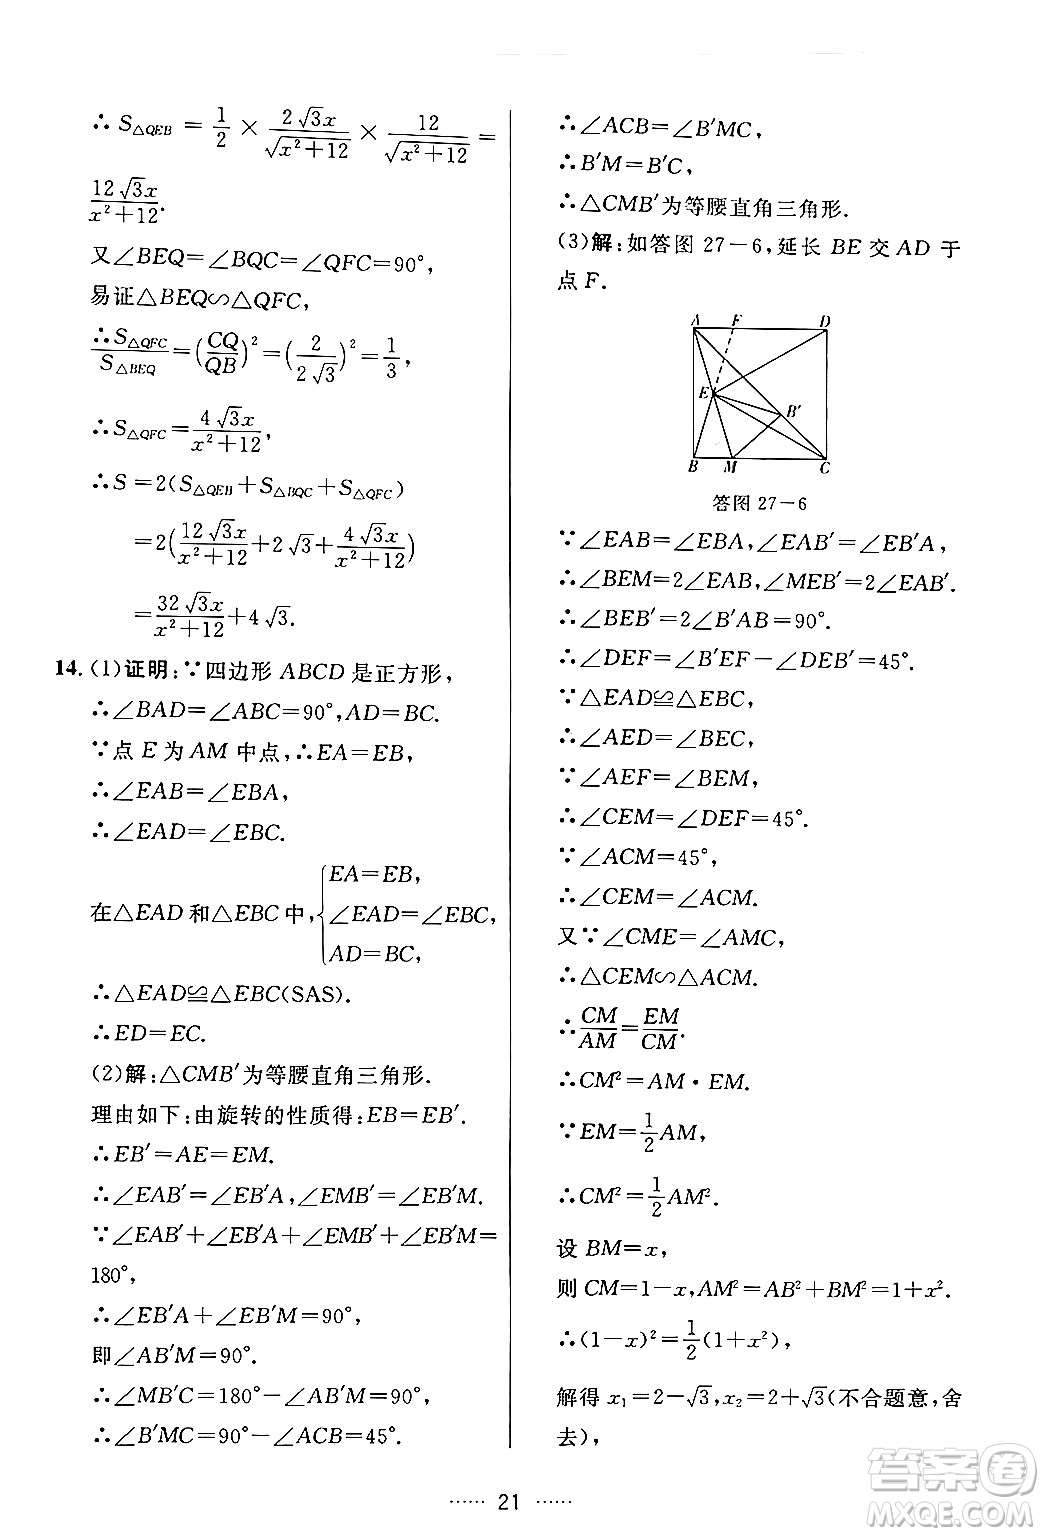 ∴S△QEB=1/2×2√3x/√(x²+12)×12/√(x²+12)=
12√3x/(x²+12).
又∠BEQ=∠BQC=∠QFC=90°,
易证△BEQ∽△QFC,
∴S△QFC/S△BEQ=(CQ/QB)²=(2/2√3)²=1/3,
∴S△QFC=4√3x/(x²+12),
∴S=2(S△QEB+S△BQC+S△QFC)
=2(12√3x/(x²+12)+2√3+4√3x/(x²+12))
=32√3x/(x²+12)+4√3.
14. (1)证明:∵四边形 ABCD 是正方形,
∴∠BAD=∠ABC=90°,AD=BC.
∵点 E 为 AM 中点,∴EA=EB,
∴∠EAB=∠EBA,
∴∠EAD=∠EBC.
在△EAD 和△EBC 中,{EA=EB,
∠EAD=∠EBC,
AD=BC,
∴△EAD≌△EBC(SAS).
∴ED=EC.
(2)解:△CMB′为等腰直角三角形.
理由如下:由旋转的性质得:EB=EB′.
∴EB′=AE=EM.
∴∠EAB′=∠EB′A,∠EMB′=∠EB′M.
∵∠EAB′+∠EB′A+∠EMB′+∠EB′M=
180°,
∴∠EB′A+∠EB′M=90°,
即∠AB′M=90°.
∴∠MB′C=180°-∠AB′M=90°,
∴∠B′MC=90°-∠ACB=45°.
∴∠ACB=∠B′MC,
∴B′M=B′C,
∴△CMB′为等腰直角三角形.
(3)解:如答图 27-6,延长 BE 交 AD 于
点 F.
A F D
E
B′
B M C
答图 27-6
∵∠EAB=∠EBA,∠EAB′=∠EB′A,
∴∠BEM=2∠EAB,∠MEB′=2∠EAB′.
∴∠BEB′=2∠B′AB=90°.
∴∠DEF=∠B′EF-∠DEB′=45°.
∵△EAD≌△EBC,
∴∠AED=∠BEC,
∵∠AEF=∠BEM,
∴∠CEM=∠DEF=45°.
∵∠ACM=45°,
∴∠CEM=∠ACM.
又∵∠CME=∠AMC,
∴△CEM∽△ACM.
∴CM/AM=EM/CM.
∴CM²=AM·EM.
∵EM=1/2AM,
∴CM²=1/2AM².
设 BM=x,
则 CM=1-x,AM²=AB²+BM²=1+x².
∴(1-x)²=1/2(1+x²),
解得 x₁=2-√3,x₂=2+√3(不合题意,舍
去),
······ 21 ······
答案圈
MXQE.COM